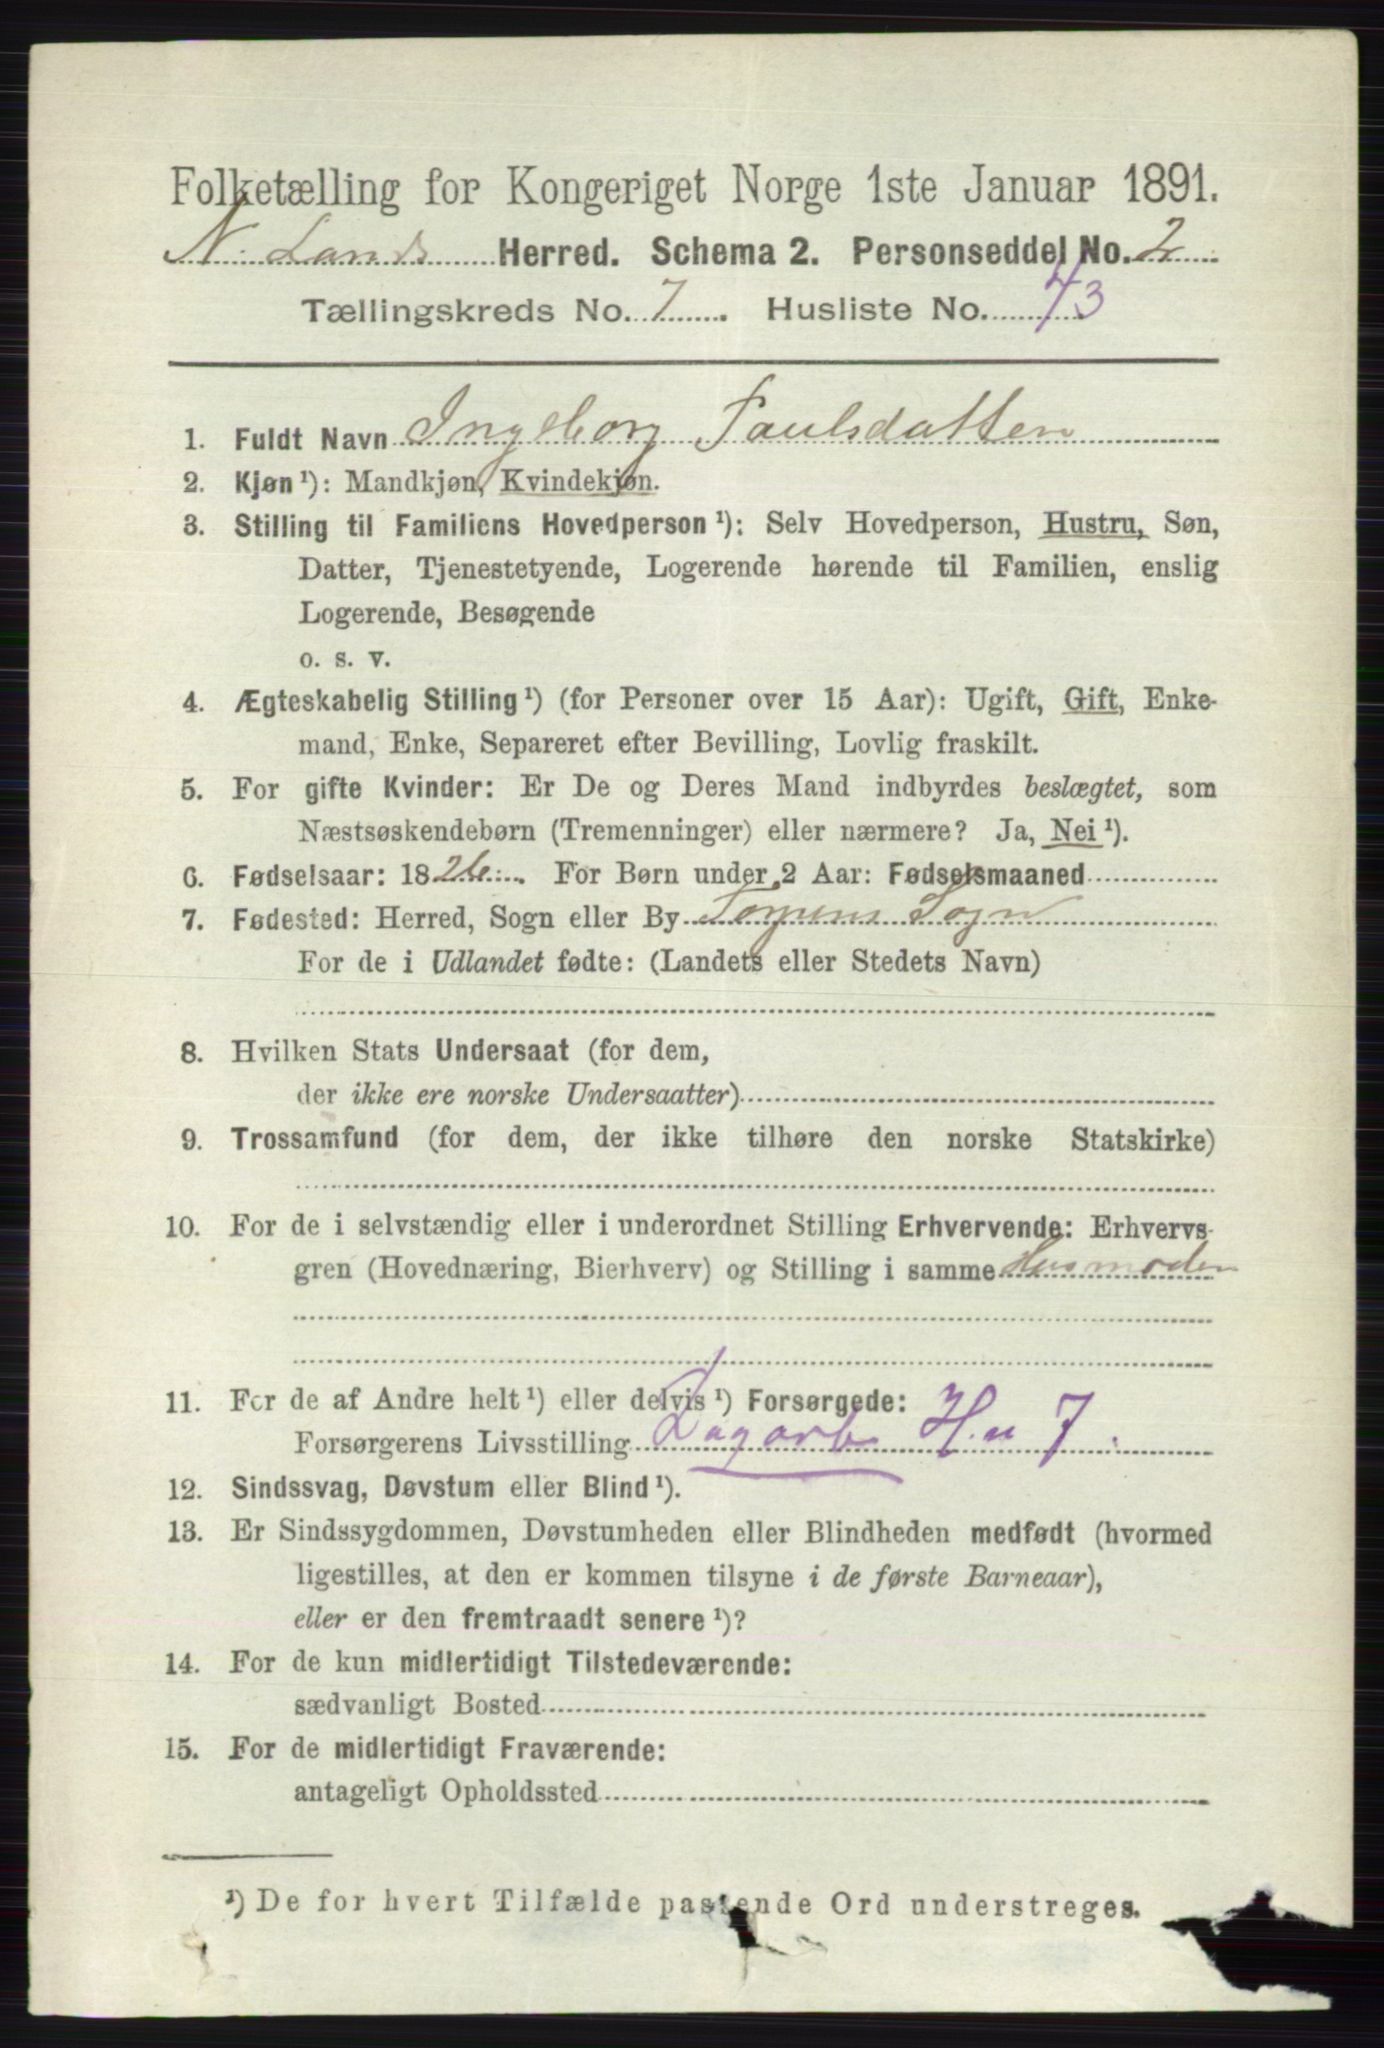 Folketælling for Kongeriget Norge 1ste Januar 1891.
N. Lands Herred. Schema 2. Personseddel No. 2
Tællingskreds No. 7. Husliste No. 73
1. Fuldt Navn Ingeborg Paulsdatter
2. Kjøn ¹): Mandkjøn, Kvindekjøn.
3. Stilling til Familiens Hovedperson ¹): Selv Hovedperson, Hustru, Søn,
Datter, Tjenestetyende, Logerende hørende til Familien, enslig
Logerende, Besøgende
o. s. v.
4. Ægteskabelig Stilling ¹) (for Personer over 15 Aar): Ugift, Gift, Enke-
mand, Enke, Separeret efter Bevilling, Lovlig fraskilt.
5. For gifte Kvinder: Er De og Deres Mand indbyrdes beslægtet, som
Næstsøskendebørn (Tremenninger) eller nærmere? Ja, Nei ¹).
6. Fødselsaar: 1826. For Børn under 2 Aar: Fødselsmaaned
7. Fødested: Herred, Sogn eller By Torpens Sogn
For de i Udlandet fødte: (Landets eller Stedets Navn)
8. Hvilken Stats Undersaat (for dem,
der ikke ere norske Undersaatter)
9. Trossamfund (for dem, der ikke tilhøre den norske Statskirke)
10. For de i selvstændig eller i underordnet Stilling Erhvervende: Erhvervs-
gren (Hovednæring, Bierhverv) og Stilling i samme Husmoder
11. For de af Andre helt ¹) eller delvis ¹) Forsørgede:
Forsørgerens Livsstilling Dagarb H.u 7.
12. Sindssvag, Døvstum eller Blind ¹).
13. Er Sindssygdommen, Døvstumheden eller Blindheden medfødt (hvormed
ligestilles, at den er kommen tilsyne i de første Barneaar),
eller er den fremtraadt senere ¹)?
14. For de kun midlertidigt Tilstedeværende:
sædvanligt Bosted
15. For de midlertidigt Fraværende:
antageligt Opholdssted
¹) De for hvert Tilfælde passende Ord understreges.